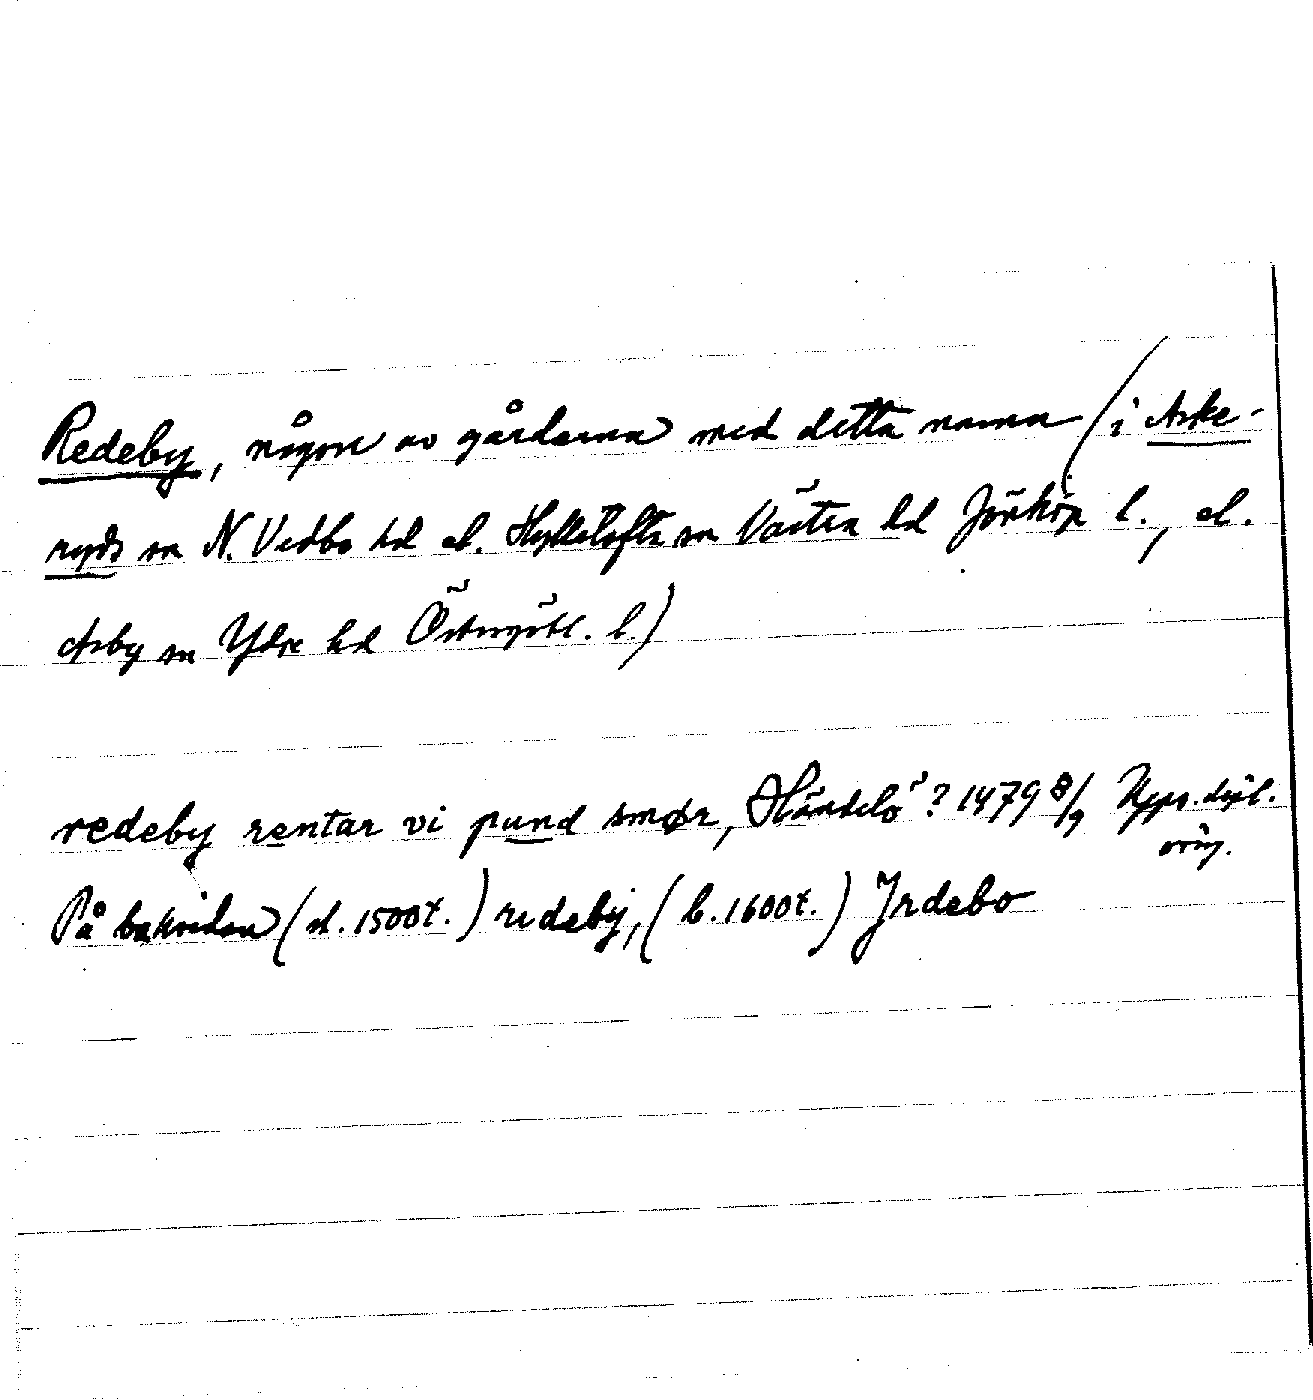 Redeby, någon av gårdarna med detta namn (i Aske-
ryds sn N. Vedbo hd el. Hylletofta sn Västra hd Jönköp l., el.
Asby sn Ydre hd Östergötl. l.)
redeby rentar vi pund smør, Händelö? 1479 8/9 Upps. dipl.
orig.
På baksidan (sl. 1500t.) redeby, (b. 1600t.) Jrdebo